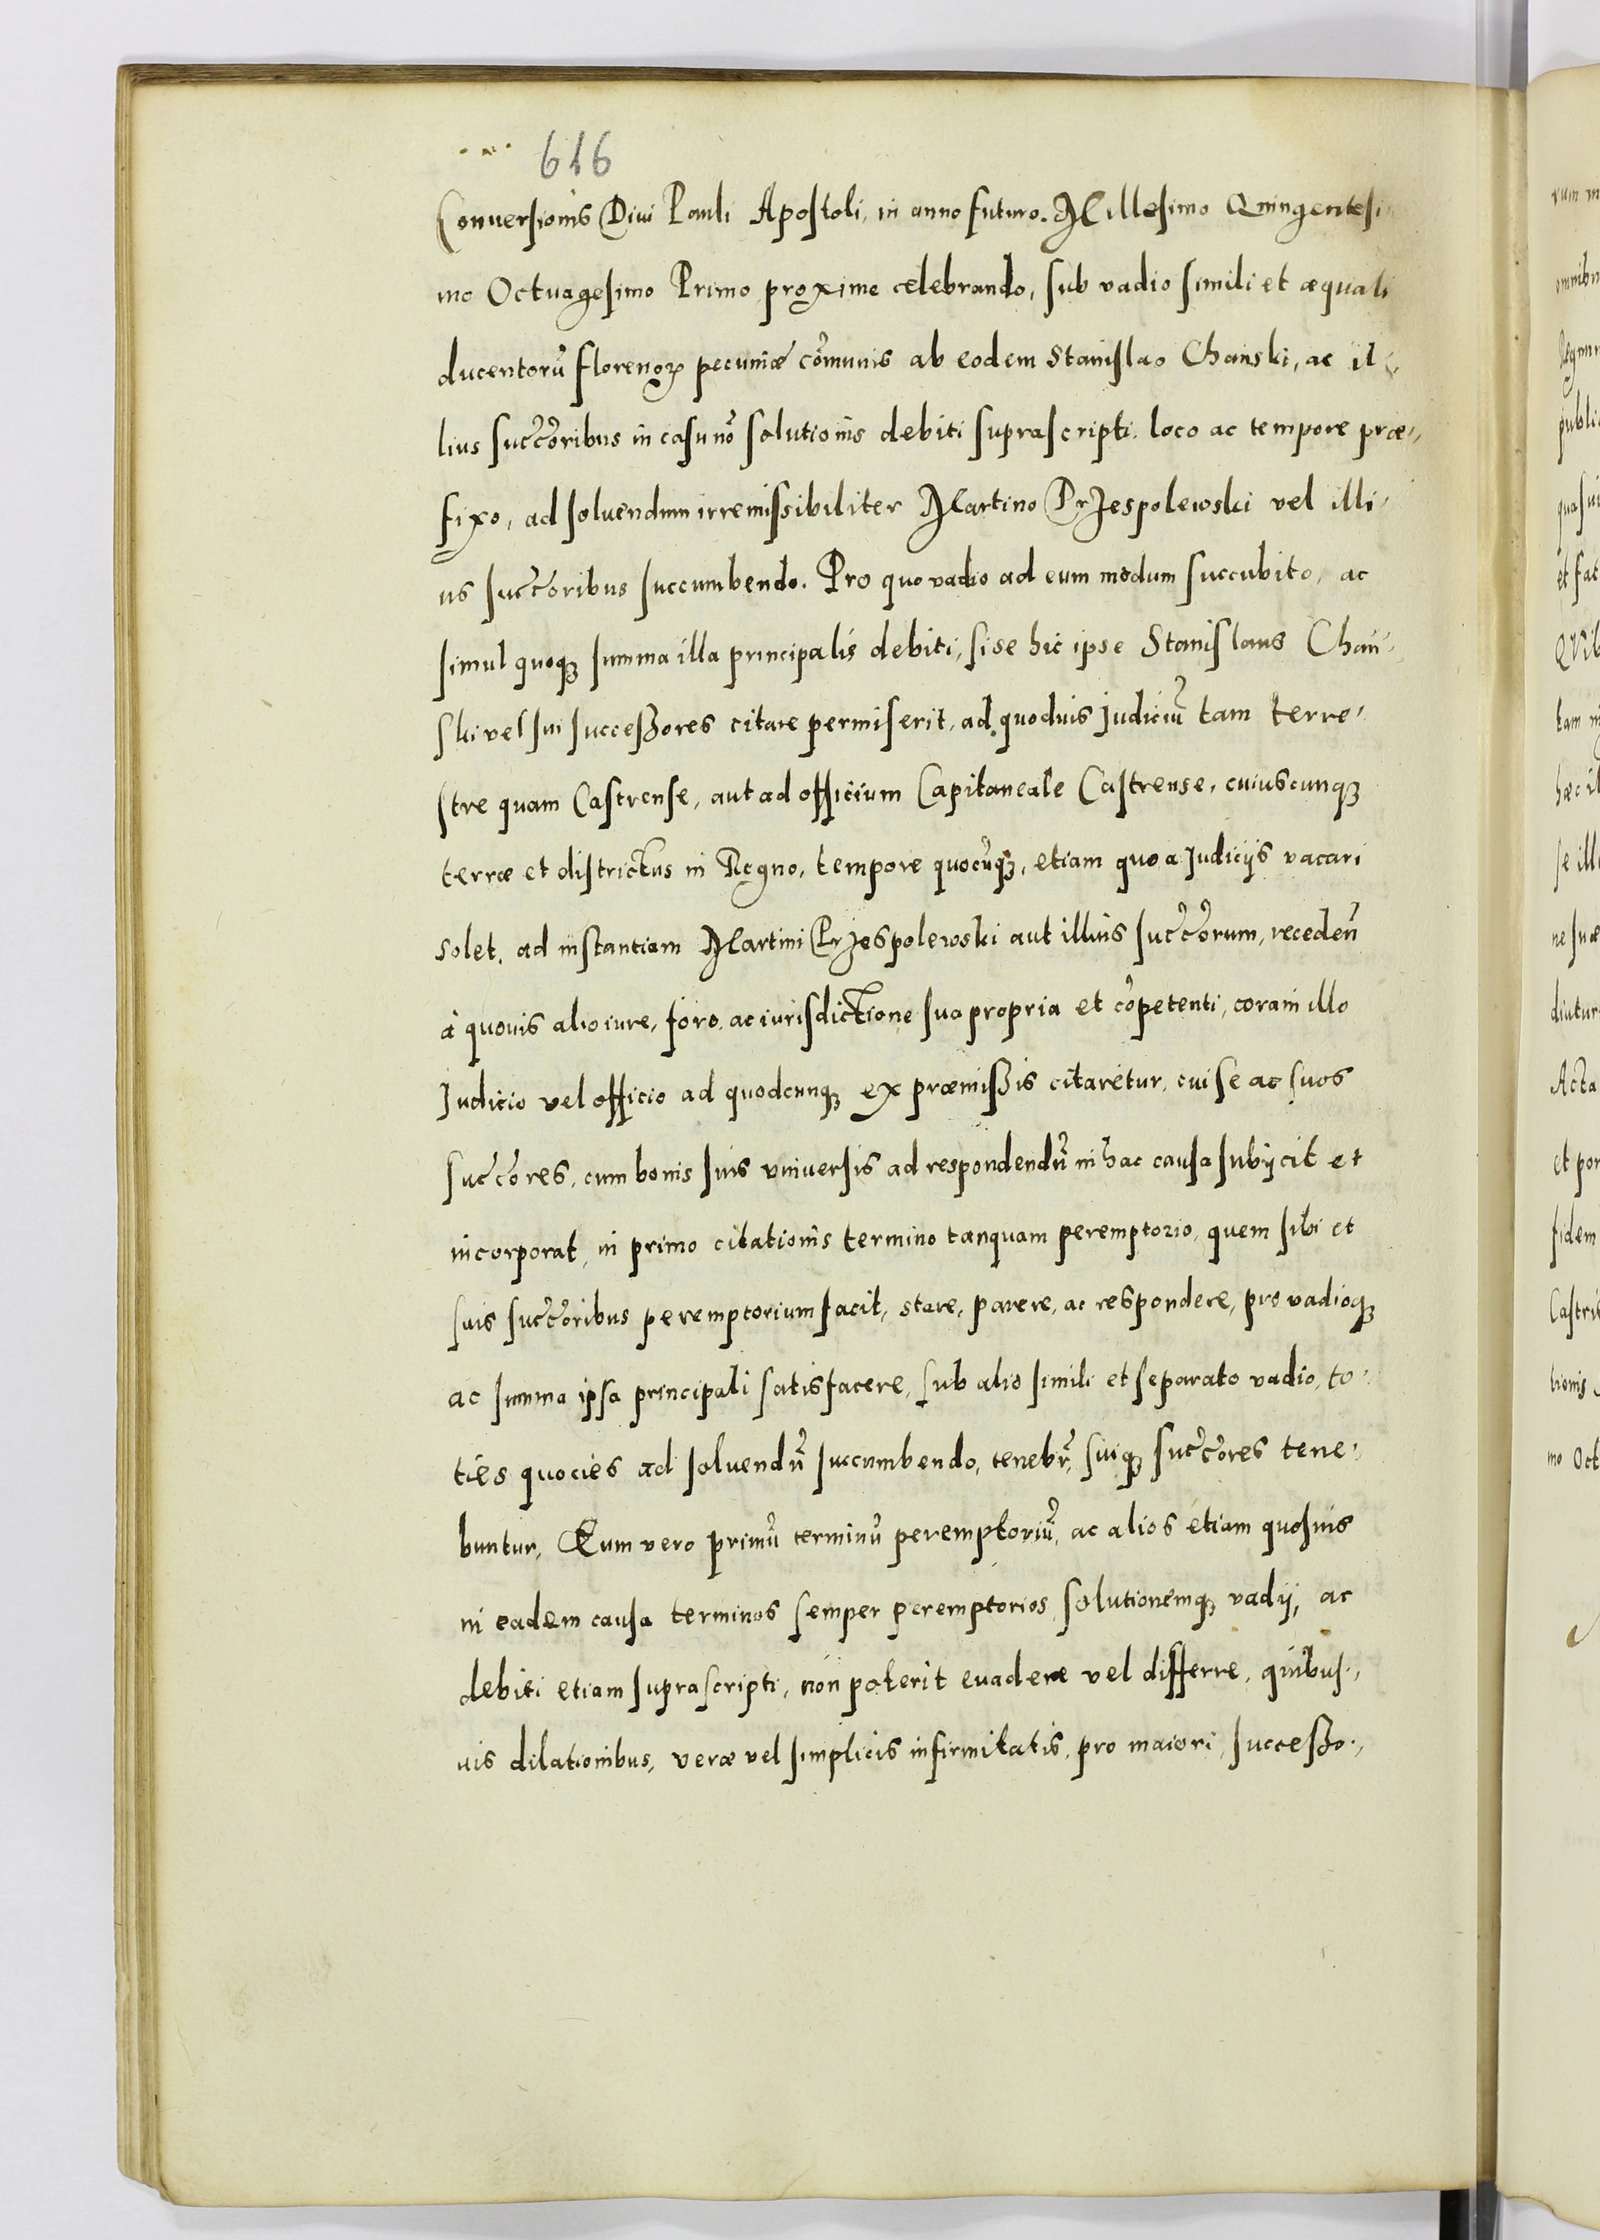 616
Conversionis Divi Pauli Apostoli, in anno futuro. Millesimo Quingentesi
mo Octuagesimo Primo proxime celebrando, sub vadio simili et æquali
ducentorũ florenoꝝ pecuniæ cõmunis ab eodem Stanislao Chanski, ac il-
lius succ̃oribus in casu nõ solutionis debiti suprascripti. loco ac tempore præ-
fixo, ad soluendum irremissibiliter Martino Przespolewski vel illi-
us succ̃oribus succumbendo. Pro quo vadio ad eum modum succubito, ac
simul quoqꝫ summa illa principalis debiti, si se hic ipse Stanislaus Chan-
ski vel sui successores citare permiserit, ad quoduis Judiciũ tam terre-
stre quam Castrense, aut ad officium Capitaneale Castrense, cuiuscunqꝫ
terræ et districtus in Regno, tempore quocũqꝫ, etiam quo a Judicijs vacari
solet, ad instantiam Martini Przespolewski aut illius succ̃orum, recedeñ
à quouis alio iure, foro, ac iurisdictione sua propria et cõpetenti, coram illo
Judicio vel officio ad quodcunqꝫ ex præmissis citaretur, cui se ac suos
succ̃ores, cum bonis suis vniuersis ad respondendũ in hac causa subijcit et
incorporat, in primo citationis termino tanquam peremptorio, quem sibi et
suis succ̃oribus peremptorium facit, stare, parere, ac respondere, pro vadioqꝫ
ac summa ipsa principali satisfacere, sub alio simili et separato vadio, to-
ties quocies ad soluendũ succumbendo, tenebr̃, suiqꝫ succ̃ores tene-
buntur. Eum vero primũ terminũ peremptoriũ, ac alios etiam quosuis
in eadem causa terminos semper peremptorios, solutionemqꝫ vadij, ac
debiti etiam suprascripti, non poterit euadere vel differre, quibus-
uis dilationibus, veræ vel simplicis infirmitatis, pro maiori, successo-